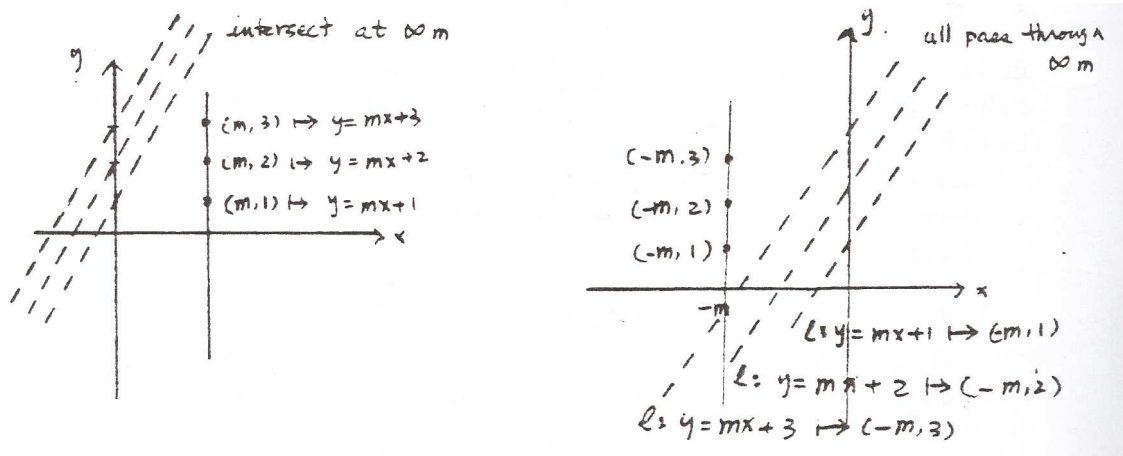 intersect at ∞ m
y
(m, 3) ↦ y = mx+3
(m, 2) ↦ y = mx+2
(m, 1) ↦ y = mx+1
x
y.
all pass through
∞ m
(-m, 3)
(-m, 2)
(-m, 1)
x
-m
l: y = mx+1 ↦ (-m, 1)
l: y = mx + 2 ↦ (-m, 2)
l: y = mx + 3 ↦ (-m, 3)